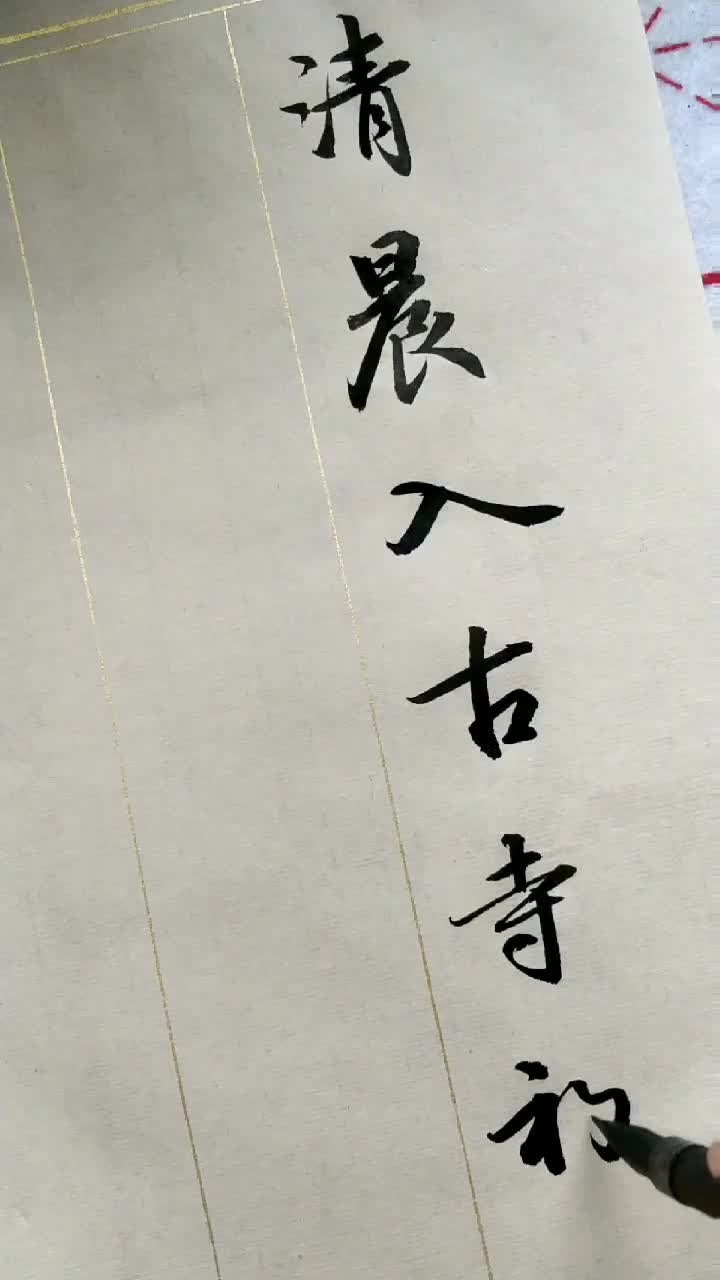 清晨入古寺初